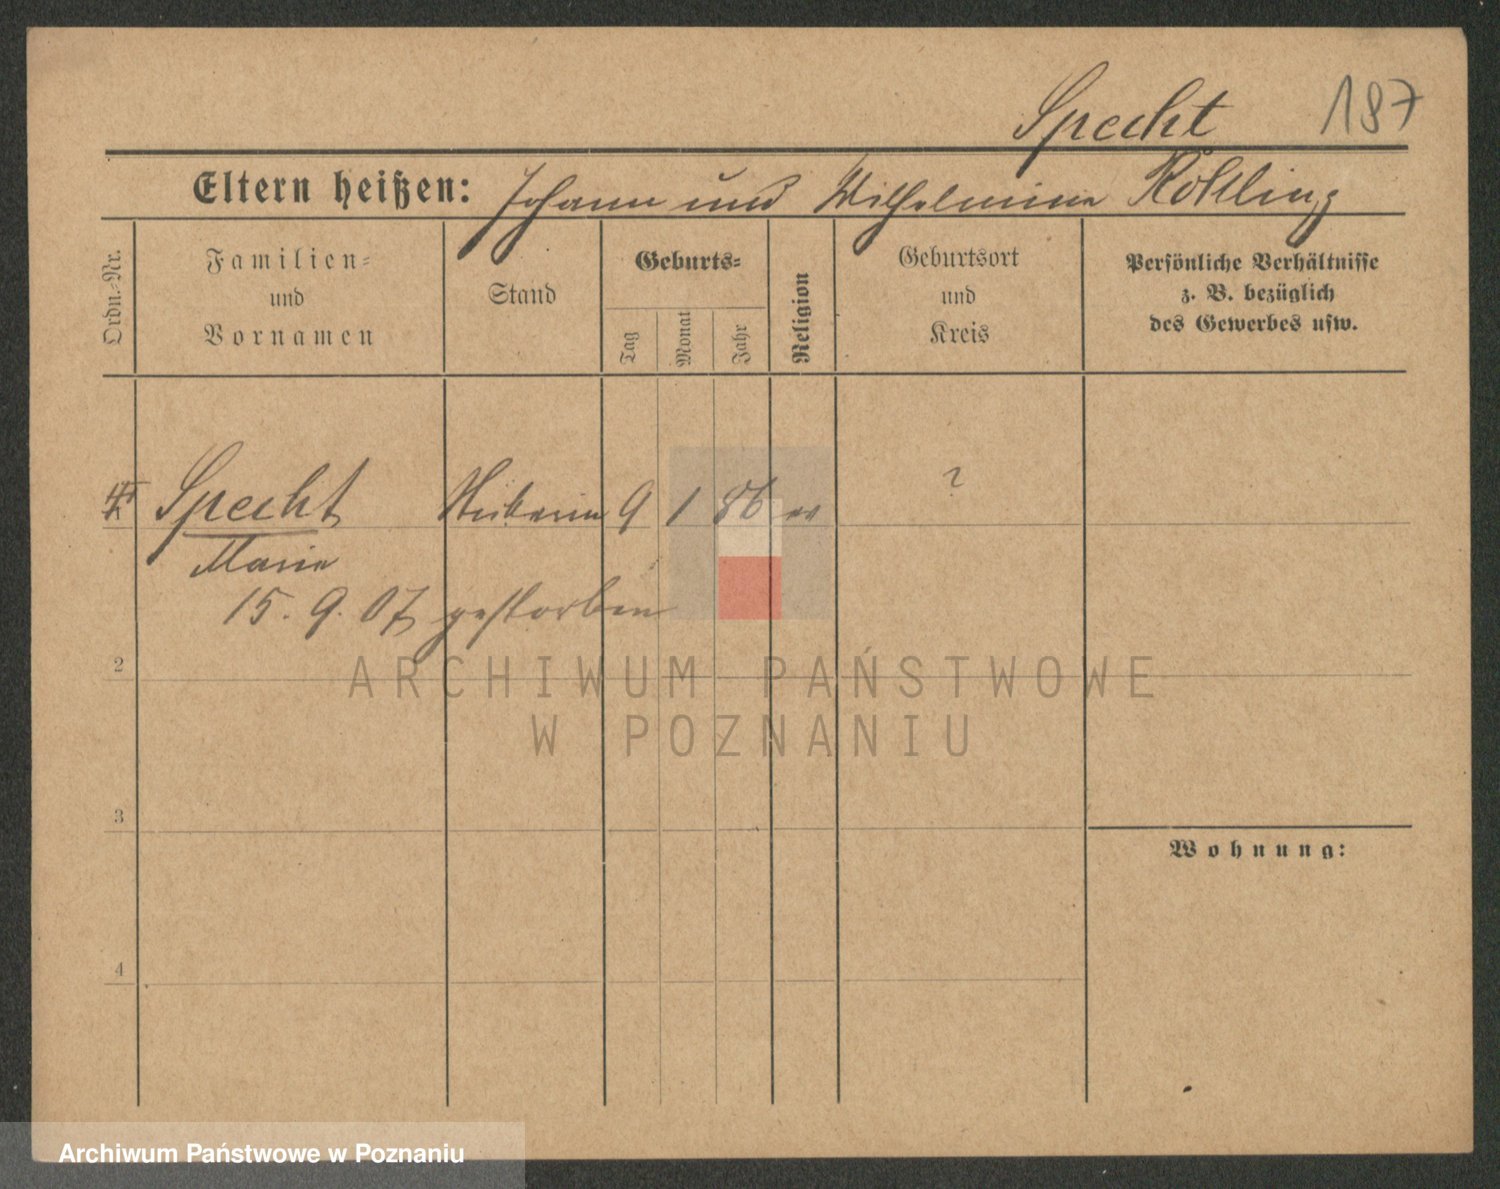 Specht 187
Eltern heißen: Johann und Wilhelmine
Ordn.-Nr.
Familien-
und
Vornamen
Stand
Geburts-
Tag
Monat
Jahr
Religion
Geburtsort
und
Kreis
Persönliche Verhältnisse
z. B. bezüglich
des Gewerbes usw.
Specht 9 1 86 ?
Marie
15. 9. 07 gestorben
2
ARCHIWUM PAŃSTWOWE
W POZNANIU
3
Wohnung:
4
Archiwum Państwowe w Poznaniu